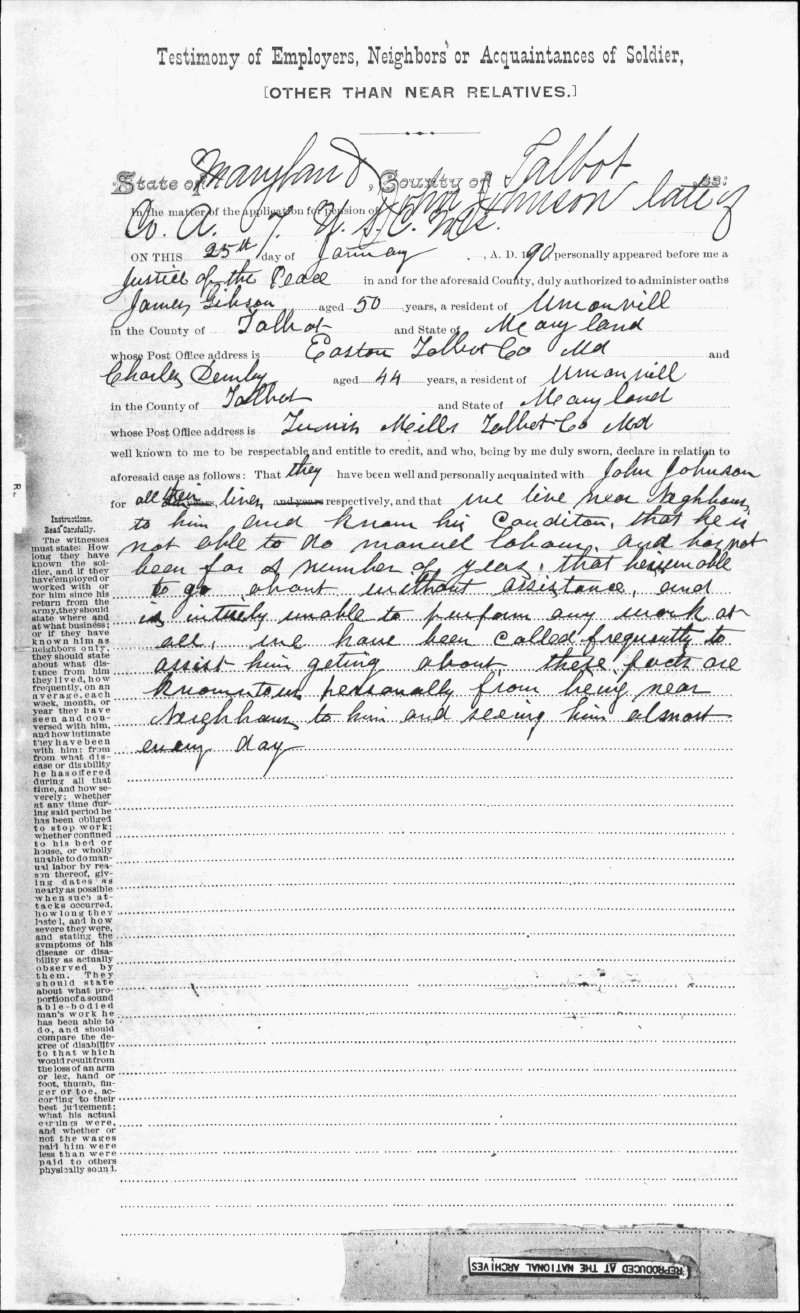 Testimony of Employers, Neighbors or Acquaintances of Soldier,
[OTHER THAN NEAR RELATIVES.]
State of Maryland, County of Talbot, ss:
In the matter of the application for pension of John Johnson late of
Co. A. 7. U. S. C.
ON THIS 25th day of January, A. D. 1890 personally appeared before me a
Justice of the Peace in and for the aforesaid County, duly authorized to administer oaths
James Gibson aged 50 years, a resident of Unionvill
in the County of Talbot and State of Maryland
whose Post Office address is Easton Talbot Co Md and
Charles Demby aged 44 years, a resident of Unionvill
in the County of Talbot and State of Maryland
whose Post Office address is Tunis Mills Talbot Co Md
well known to me to be respectable and entitle to credit, and who, being by me duly sworn, declare in relation to
aforesaid case as follows: That they have been well and personally acquainted with John Johnson
for all their lives and years respectively, and that we live near Neghbours
to him and know his Conditon, that he is
not able to do manuel labour, and has not
been for a number of years, that he is unable
to go about without assistance, and
is intirely unable to perform any work at
all, we have been Called frequently to
assist him geting about, these facts are
known to us personally from being near
Neighbours to him and seeing him almost
every day
Instructions.
Read Carefully.
The witnesses
must state: How
long they have
known the sol-
dier, and if they
have employed or
worked with or
for him since his
return from the
army, they should
state where and
at what business;
or if they have
known him as
neighbors only,
they should state
about what dis-
tance from him
they lived, how
frequently, on an
average, each
week, month, or
year they have
seen and con-
versed with him,
and how intimate
they have been
with him; from
from what dis-
ease or disibility
he has offered
during all that
time, and how se-
verely; whether
at any time dur-
ing said period he
has been obliged
to stop work;
whether confined
to his bed or
house, or wholly
unable to do man-
ual labor by rea-
son thereof, giv-
ing dates as
nearly as possible
when such at-
tacks occurred,
how long they
lasted, and how
severe they were,
and stating the
symptoms of his
disease or disa-
bility as actually
observed by
them. They
should state
about what pro-
portion of a sound
able-bodied
man's work he
has been able to
do, and should
compare the de-
gree of disability
to that which
would result from
the loss of an arm
or leg, hand or
foot, thumb, fin-
ger or toe, ac-
cording to their
best judgement;
what his actual
earnings were,
and whether or
not the wages
paid him were
less than were
paid to others
physically sound.
REPRODUCED AT THE NATIONAL ARCHIVES